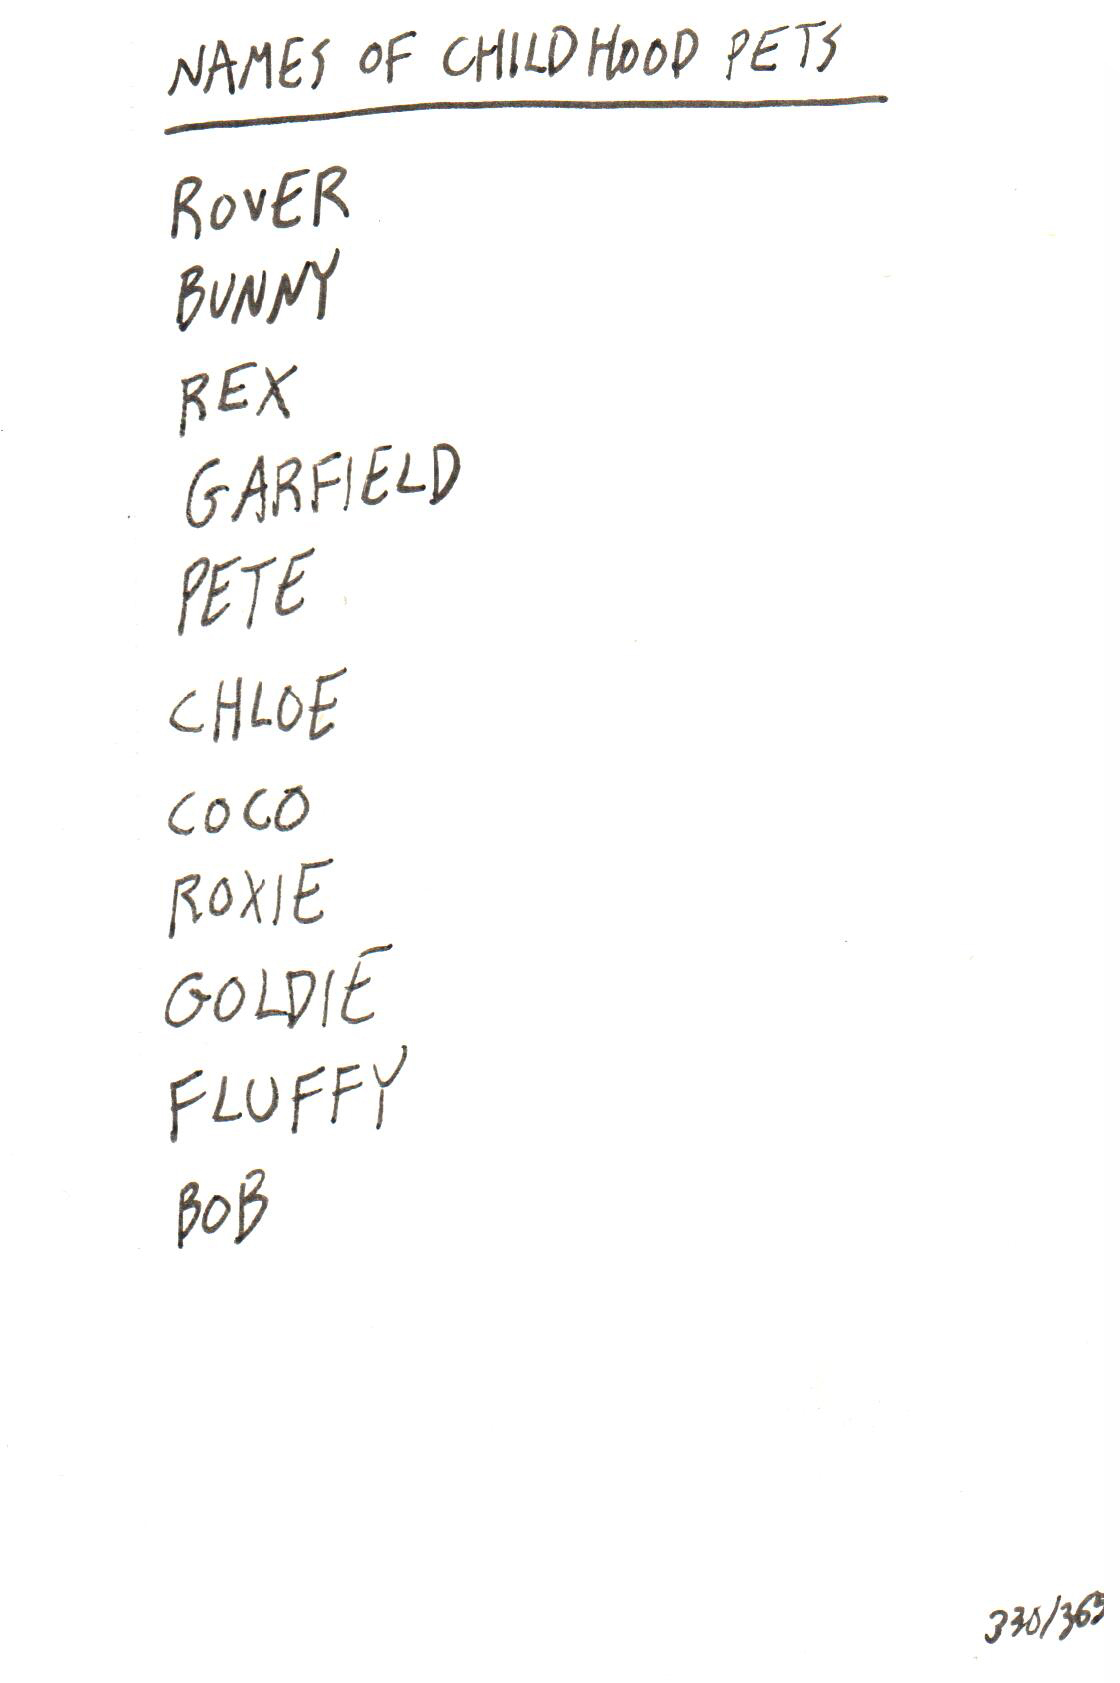 NAMES OF CHILDHOOD PETS
ROVER
BUNNY
REX
GARFIELD
PETE
CHLOE
COCO
ROXIE
GOLDIE
FLUFFY
BOB
330/365